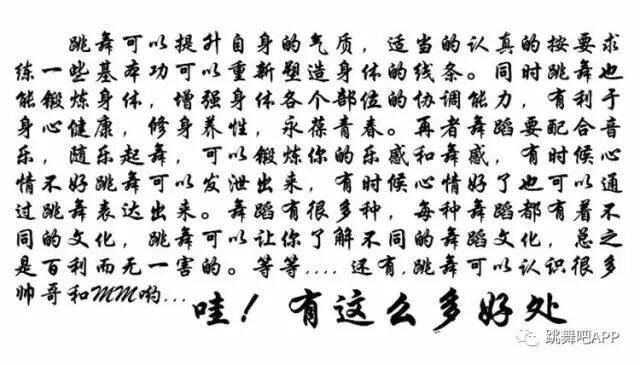 跳舞可以提升自身的气质，适当的认真的按要求
练一些基本功可以重新塑造身体的线条。同时跳舞也
能锻炼身体，增强身体各个部位的协调能力，有利于
身心健康，修身养性，永葆青春。再者舞蹈要配合音
乐，随乐起舞，可以锻炼你的乐感和舞感，有时候心
情不好跳舞可以发泄出来，有时候心情好了也可以通
过跳舞表达出来。舞蹈有很多种，每种舞蹈都有着不
同的文化，跳舞可以让你了解不同的舞蹈文化，总之
是百利而无一害的。等等....还有,跳舞可以认识很多
帅哥和MM哟...
哇！有这么多好处
跳舞吧APP